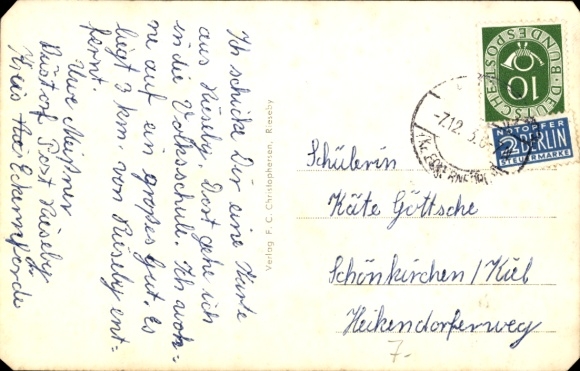 Ich schicke Dir eine Karte
aus Rieseby. Dort gehe ich
in die Volksschule. Ich woh=
ne auf ein großes Gut. Es
liegt 3 km. von Rieseby ent=
fernt.
Uwe Meißner
Post Rieseby
Kreis Eckernförde
Verlag F. C. Christophersen, Rieseby
DEUTSCHE BUNDESPOST
10
-7.12.5
NOTOPFER
2 BERLIN
STEUERMARKE
Schülerin
Käte Göttsche
Schönkirchen / Kiel
Heikendorferweg
7.-